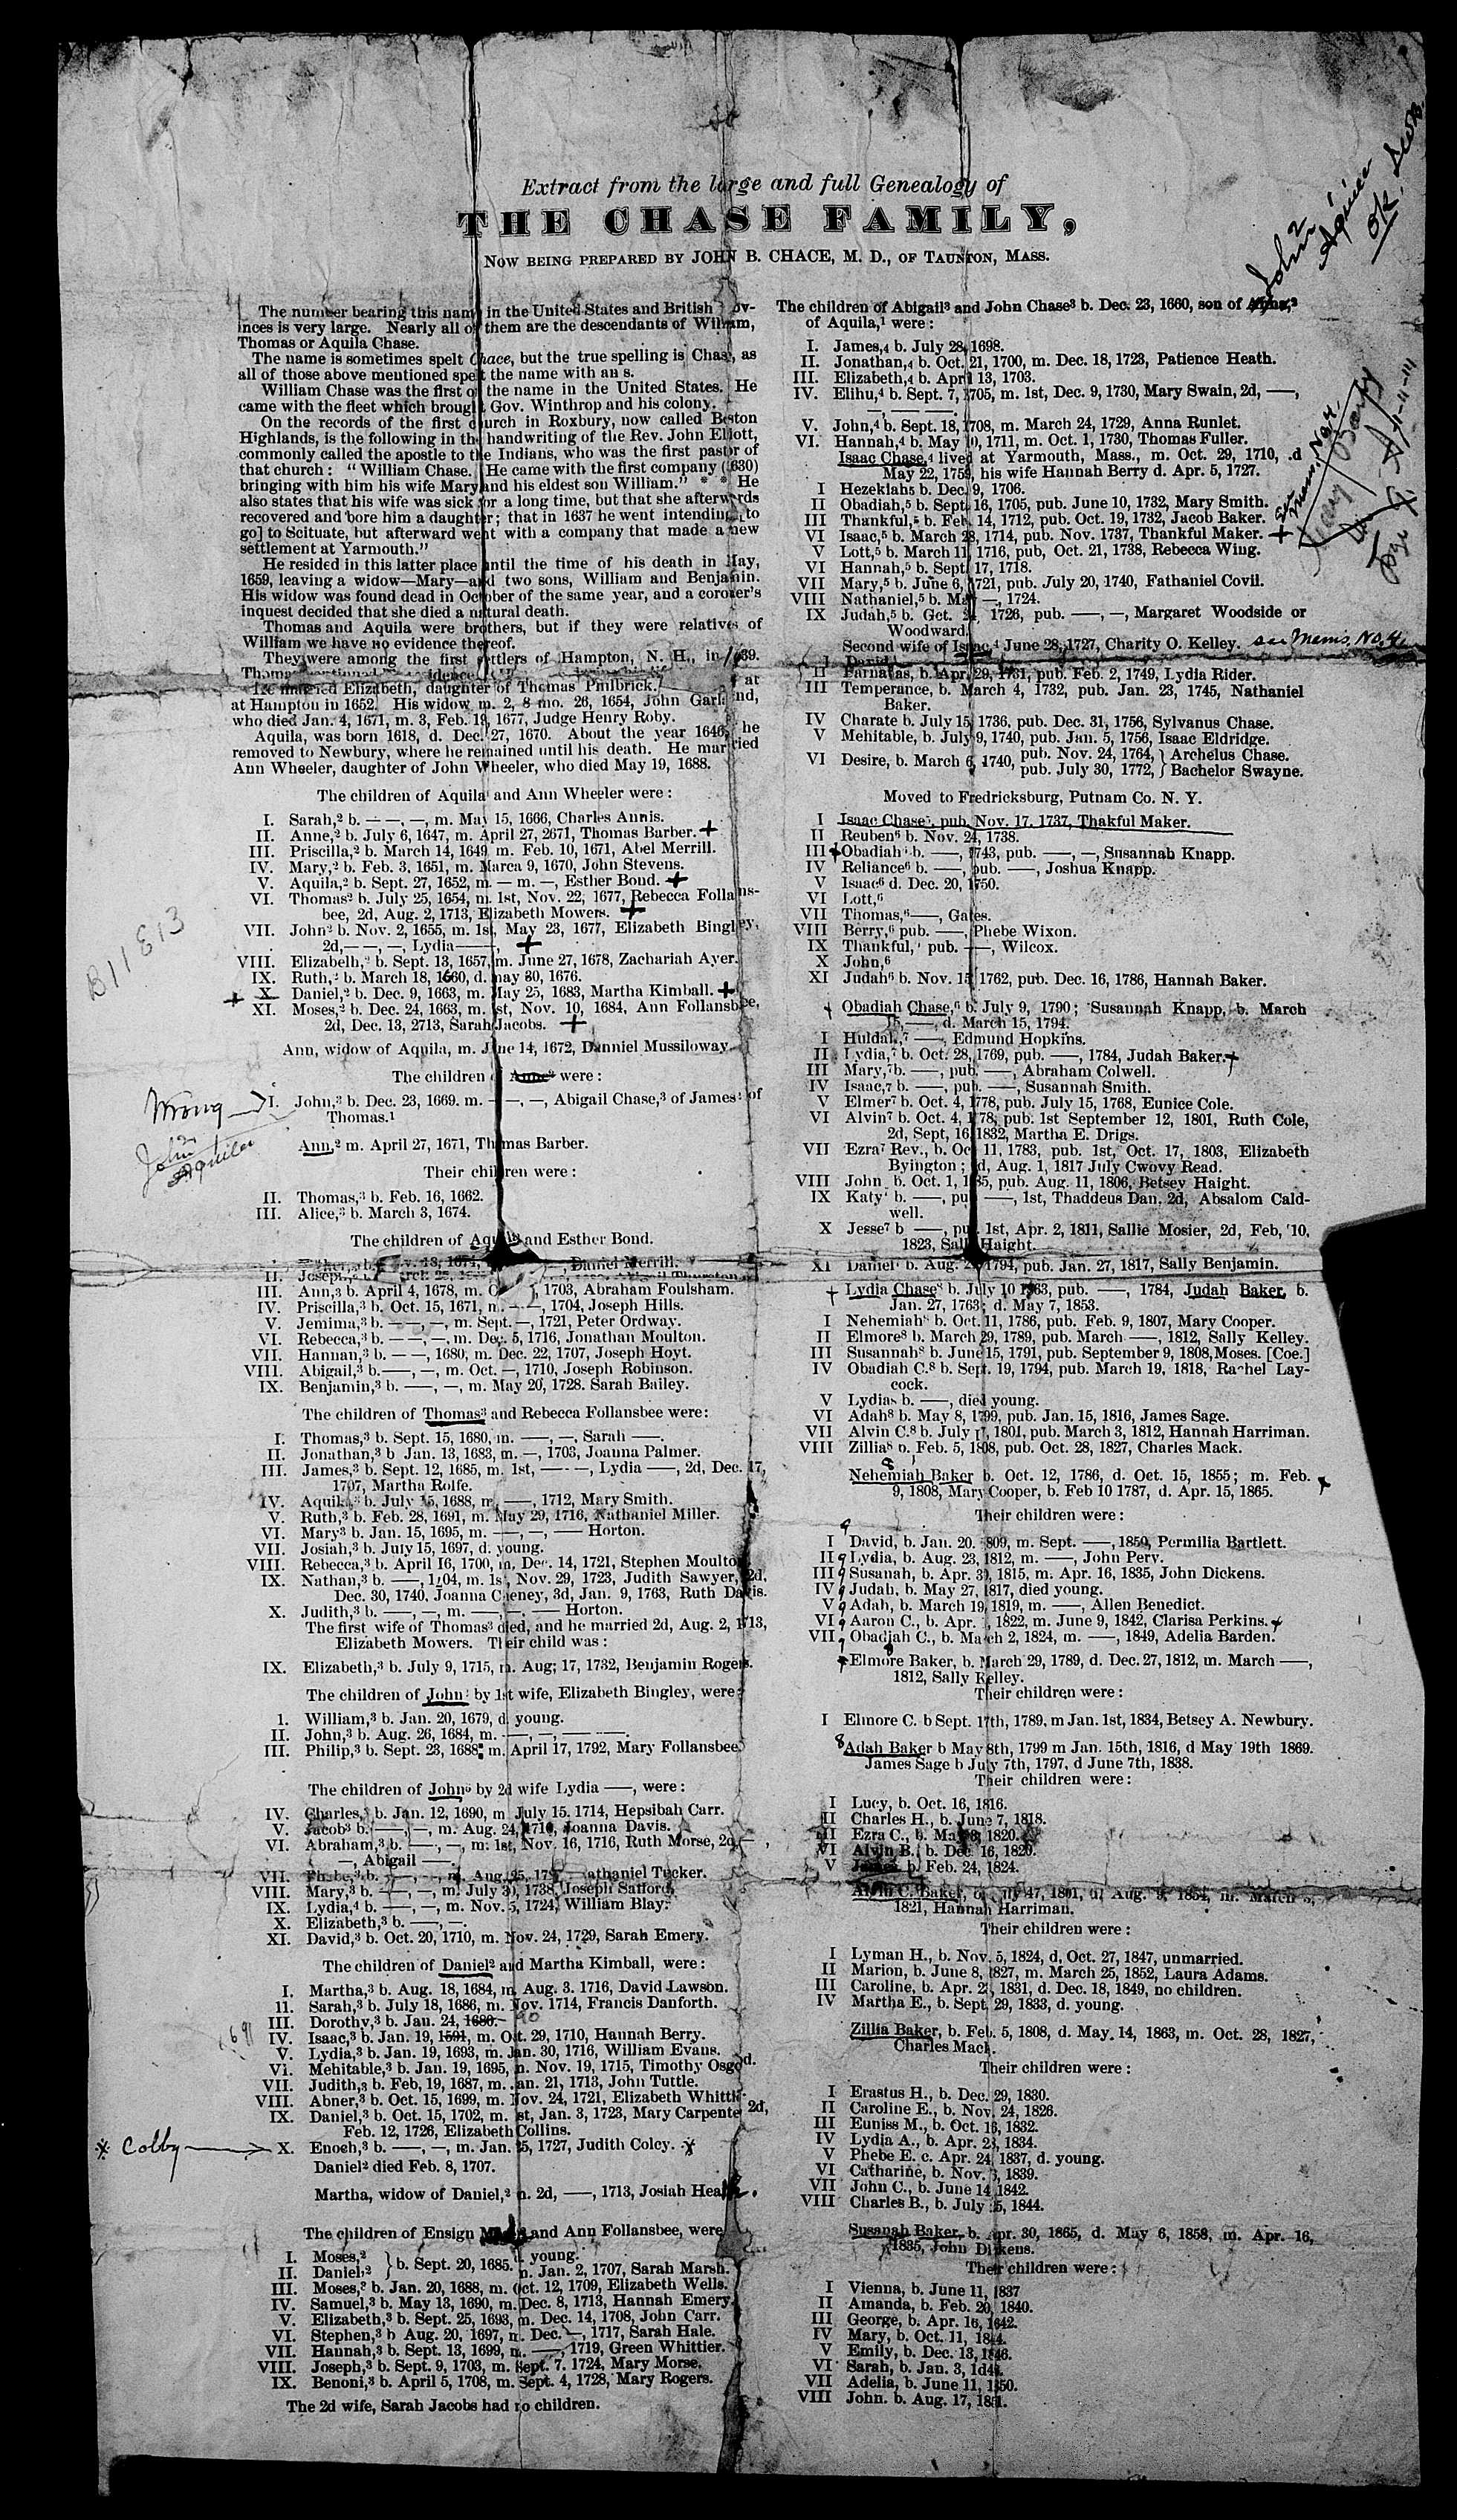 Extract from the large and full Genealogy of
THE CHASE FAMILY,
NOW BEING PREPARED BY JOHN B. CHACE, M. D., OF TAUNTON, MASS.
The number bearing this name in the United States and British Prov-
inces is very large. Nearly all of them are the descendants of William,
Thomas or Aquila Chase.
The name is sometimes spelt Chace, but the true spelling is Chase, as
all of those above mentioned spelt the name with an s.
William Chase was the first of the name in the United States. He
came with the fleet which brought Gov. Winthrop and his colony.
On the records of the first church in Roxbury, now called Boston
Highlands, is the following in the handwriting of the Rev. John Elliott,
commonly called the apostle to the Indians, who was the first pastor of
that church: "William Chase. He came with the first company (1630)
bringing with him his wife Mary and his eldest son William." * * He
also states that his wife was sick for a long time, but that she afterwards
recovered and bore him a daughter; that in 1637 he went intending to
go] to Scituate, but afterward went with a company that made a new
settlement at Yarmouth."
He resided in this latter place until the time of his death in May,
1659, leaving a widow—Mary—and two sons, William and Benjamin.
His widow was found dead in October of the same year, and a coroner's
inquest decided that she died a natural death.
Thomas and Aquila were brothers, but if they were relatives of
William we have no evidence thereof.
They were among the first settlers of Hampton, N. H., in 1639.
He married Elizabeth, daughter of Thomas Philbrick.
at Hampton in 1652. His widow m. 2, 8 mo. 26, 1654, John Garland,
who died Jan. 4, 1671, m. 3, Feb. 19, 1677, Judge Henry Roby.
Aquila, was born 1618, d. Dec. 27, 1670. About the year 1646, he
removed to Newbury, where he remained until his death. He married
Ann Wheeler, daughter of John Wheeler, who died May 19, 1688.
The children of Aquila¹ and Ann Wheeler were:
I. Sarah,² b. — —, —, m. May 15, 1666, Charles Annis.
II. Anne,² b. July 6, 1647, m. April 27, 2671, Thomas Barber. +
III. Priscilla,² b. March 14, 1649 m. Feb. 10, 1671, Abel Merrill.
IV. Mary,² b. Feb. 3, 1651, m. Marca 9, 1670, John Stevens.
V. Aquila,² b. Sept. 27, 1652, m. — m. —, Esther Bond. +
VI. Thomas² b. July 25, 1654, m. 1st, Nov. 22, 1677, Rebecca Follans-
bee, 2d, Aug. 2, 1713, Elizabeth Mowers. +
VII. John² b. Nov. 2, 1655, m. 1st, May 23, 1677, Elizabeth Bingley,
2d,— —, —, Lydia ——, +
VIII. Elizabelh,² b. Sept. 13, 1657, m. June 27, 1678, Zachariah Ayer.
IX. Ruth,² b. March 18, 1660, d. may 30, 1676.
+ X. Daniel,² b. Dec. 9, 1663, m. May 25, 1683, Martha Kimball. +
XI. Moses,² b. Dec. 24, 1663, m. 1st, Nov. 10, 1684, Ann Follansbee,
2d, Dec. 13, 2713, Sarah Jacobs. +
B11813
Ann, widow of Aquila, m. June 14, 1672, Danniel Mussiloway.
The children of Anne² were:
Wrong I. John,³ b. Dec. 23, 1669. m. — —, —, Abigail Chase,³ of James² of
Thomas.¹
John² Aquila
Ann,² m. April 27, 1671, Thomas Barber.
Their children were:
II. Thomas,³ b. Feb. 16, 1662.
III. Alice,³ b. March 3, 1674.
The children of Aquila and Esther Bond.
Daniel Merrill.
II. Joseph,
III. Ann,³ b. April 4, 1678, m. 1703, Abraham Foulsham.
IV. Priscilla,³ b. Oct. 15, 1671, m. — —, 1704, Joseph Hills.
V. Jemima,³ b. — —, —, m. Sept. —, 1721, Peter Ordway.
VI. Rebecca,³ b. — —, —, m. Dec. 5, 1716, Jonathan Moulton.
VII. Hannan,³ b. — —, 1680, m. Dec. 22, 1707, Joseph Hoyt.
VIII. Abigail,³ b. ——, —, m. Oct. —, 1710, Joseph Robinson.
IX. Benjamin,³ b. ——, —, m. May 20, 1728. Sarah Bailey.
The children of Thomas³ and Rebecca Follansbee were:
I. Thomas,³ b. Sept. 15, 1680, m. ——, —, Sarah ——.
II. Jonathan,³ b. Jan. 13, 1683, m. —, 1703, Joanna Palmer.
III. James,³ b. Sept. 12, 1685, m. 1st, —— —, Lydia ——, 2d, Dec. 17,
1707, Martha Rolfe.
IV. Aquila,³ b. July 15, 1688, m. ——, 1712, Mary Smith.
V. Ruth,³ b. Feb. 28, 1691, m. May 29, 1716, Nathaniel Miller.
VI. Mary³ b. Jan. 15, 1695, m. ——, —, —— Horton.
VII. Josiah,³ b. July 15, 1697, d. young.
VIII. Rebecca,³ b. April 16, 1700, m. Dec. 14, 1721, Stephen Moulton.
IX. Nathan,³ b. ——, 1704, m. 1st, Nov. 29, 1723, Judith Sawyer, 2d,
Dec. 30, 1740, Joanna Cheney, 3d, Jan. 9, 1763, Ruth Davis.
X. Judith,³ b. ——, —, m. ——, —, —— Horton.
The first wife of Thomas³ died, and he married 2d, Aug. 2, 1713,
Elizabeth Mowers. Their child was:
IX. Elizabeth,³ b. July 9, 1715, m. Aug; 17, 1732, Benjamin Rogers.
The children of John² by 1st wife, Elizabeth Bingley, were:
1. William,³ b. Jan. 20, 1679, d. young.
II. John,³ b. Aug. 26, 1684, m. ——, —, —— ——.
III. Philip,³ b. Sept. 23, 1688; m. April 17, 1792, Mary Follansbee.
The children of John² by 2d wife Lydia ——, were:
IV. Charles,³ b. Jan. 12, 1690, m July 15. 1714, Hepsibah Carr.
V. Jacob³ b. ——, —, m. Aug. 24, 1716, Joanna Davis.
VI. Abraham,³ b. ——, —, m. 1st, Nov. 16, 1716, Ruth Morse, 2d, — ,
—, Abigail ——.
VII. Phebe,³ b. ——, —, m. Aug. 25, Nathaniel Tucker.
VIII. Mary,³ b. ——, —, m. July 30, 1738, Joseph Safford.
IX. Lydia,⁴ b. ——, —, m. Nov. 5, 1724, William Blay.
X. Elizabeth,³ b. ——, —.
XI. David,³ b. Oct. 20, 1710, m. Nov. 24, 1729, Sarah Emery.
The children of Daniel² and Martha Kimball, were:
I. Martha,³ b. Aug. 18, 1684, m. Aug. 3. 1716, David Lawson.
11. Sarah,³ b. July 18, 1686, m. Nov. 1714, Francis Danforth.
III. Dorothy,³ b. Jan. 24, 1680. 90
1691 IV. Isaac,³ b. Jan. 19, 1591, m. Oct. 29, 1710, Hannah Berry.
V. Lydia,³ b. Jan. 19, 1693, m. Jan. 30, 1716, William Evans.
Vi. Mehitable,³ b. Jan. 19, 1695, m. Nov. 19, 1715, Timothy Osgood.
VII. Judith,³ b. Feb, 19, 1687, m. Jan. 21, 1713, John Tuttle.
VIII. Abner,³ b. Oct. 15, 1699, m. Nov. 24, 1721, Elizabeth Whittle.
IX. Daniel,³ b. Oct. 15, 1702, m. 1st, Jan. 3, 1723, Mary Carpenter 2d,
Feb. 12, 1726, Elizabeth Collins.
* Colby X. Enoch,³ b. ——, —, m. Jan. 25, 1727, Judith Colcy. x
Daniel² died Feb. 8, 1707.
Martha, widow of Daniel,² m. 2d, ——, 1713, Josiah Heath.
The children of Ensign and Ann Follansbee, were
I. Moses,² } b. Sept. 20, 1685. d. young.
II. Daniel,² m. Jan. 2, 1707, Sarah Marsh.
III. Moses,² b. Jan. 20, 1688, m. Oct. 12, 1709, Elizabeth Wells.
IV. Samuel,³ b. May 13, 1690, m. Dec. 8, 1713, Hannah Emery.
V. Elizabeth,³ b. Sept. 25, 1693, m. Dec. 14, 1708, John Carr.
VI. Stephen,³ b Aug. 20, 1697, m. Dec. —, 1717, Sarah Hale.
VII. Hannah,³ b. Sept. 13, 1699, m. ——, 1719, Green Whittier.
VIII. Joseph,³ b. Sept. 9, 1703, m. Sept. 7. 1724, Mary Morse.
IX. Benoni,³ b. April 5, 1708, m. Sept. 4, 1728, Mary Rogers.
The 2d wife, Sarah Jacobs had no children.
John² Aquila OK
The children of Abigail³ and John Chase³ b. Dec. 23, 1660, son of Anna,²
of Aquila,¹ were:
I. James,⁴ b. July 28, 1698.
II. Jonathan,⁴ b. Oct. 21, 1700, m. Dec. 18, 1723, Patience Heath.
III. Elizabeth,⁴ b. April 13, 1703.
IV. Elihu,⁴ b. Sept. 7, 1705, m. 1st, Dec. 9, 1730, Mary Swain, 2d, ——,
—, —— ——.
V. John,⁴ b. Sept. 18, 1708, m. March 24, 1729, Anna Runlet.
VI. Hannah,⁴ b. May 10, 1711, m. Oct. 1, 1730, Thomas Fuller.
Isaac Chase,⁴ lived at Yarmouth, Mass., m. Oct. 29, 1710, .d
May 22, 1759, his wife Hannah Berry d. Apr. 5, 1727.
I Hezekiah⁵ b. Dec. 9, 1706.
II Obadiah,⁵ b. Sept. 16, 1705, pub. June 10, 1732, Mary Smith.
III Thankful,⁵ b. Feb. 14, 1712, pub. Oct. 19, 1732, Jacob Baker.
VI Isaac,⁵ b. March 28, 1714, pub. Nov. 1737, Thankful Maker. + See Mem. No. 4.
V Lott,⁵ b. March 11, 1716, pub, Oct. 21, 1738, Rebecca Wing.
VI Hannah,⁵ b. Sept. 17, 1718.
VII Mary,⁵ b. June 6, 1721, pub. July 20, 1740, Fathaniel Covil.
VIII Nathaniel,⁵ b. May —, 1724.
IX Judah,⁵ b. Gct. 24, 1726, pub. ——, —, Margaret Woodside or
Woodward.
Second wife of Isaac,⁴ June 28, 1727, Charity O. Kelley. see Mem's. No. 4.
I David
II Barnabas, b. Apr. 29, 1731, pub. Feb. 2, 1749, Lydia Rider.
III Temperance, b. March 4, 1732, pub. Jan. 23, 1745, Nathaniel
Baker.
IV Charate b. July 15, 1736, pub. Dec. 31, 1756, Sylvanus Chase.
V Mehitable, b. July 9, 1740, pub. Jan. 5, 1756, Isaac Eldridge.
VI Desire, b. March 6, 1740, pub. Nov. 24, 1764, } Archelus Chase.
pub. July 30, 1772, } Bachelor Swayne.
Moved to Fredricksburg, Putnam Co. N. Y.
I Isaac Chase⁵, pub. Nov. 17, 1737, Thakful Maker.
II Reuben⁶ b. Nov. 24, 1738.
III + Obadiah⁶ b. ——, 1743, pub. ——, —, Susannah Knapp.
IV Reliance⁶ b. ——, pub. ——, Joshua Knapp.
V Isaac⁶ d. Dec. 20, 1750.
VI Lott,⁶
VII Thomas,⁶ ——, Gates.
VIII Berry,⁶ pub. ——, Phebe Wixon.
IX Thankful,⁶ pub. ——, Wilcox.
X John,⁶
XI Judah⁶ b. Nov. 15, 1762, pub. Dec. 16, 1786, Hannah Baker.
+ Obadiah Chase,⁶ b. July 9, 1790; Susannah Knapp, b. March
15, ——, d. March 15, 1794.
I Huldah,⁷ ——, Edmund Hopkins.
II Lydia,⁷ b. Oct. 28, 1769, pub. ——, 1784, Judah Baker. +
III Mary,⁷ b. ——, pub. ——, Abraham Colwell.
IV Isaac,⁷ b. ——, pub. ——, Susannah Smith.
V Elmer⁷ b. Oct. 4, 1778, pub. July 15, 1768, Eunice Cole.
VI Alvin⁷ b. Oct. 4, 1778, pub. 1st September 12, 1801, Ruth Cole,
2d, Sept, 16, 1832, Martha E. Drigs.
VII Ezra⁷ Rev., b. Oct. 11, 1783, pub. 1st, Oct. 17, 1803, Elizabeth
Byington; 2d, Aug. 1, 1817 July Cwovy Read.
VIII John b. Oct. 1, 1785, pub. Aug. 11, 1806, Betsey Haight.
IX Katy⁷ b. ——, pub. ——, 1st, Thaddeus Dan. 2d, Absalom Cald-
well.
X Jesse⁷ b ——, pub. 1st, Apr. 2, 1811, Sallie Mosier, 2d, Feb, '10,
1823, Sally Haight.
XI Daniel⁷ b. Aug. 2, 1794, pub. Jan. 27, 1817, Sally Benjamin.
+ Lydia Chase⁸ b. July 10 1763, pub. ——, 1784, Judah Baker, b.
Jan. 27, 1763; d. May 7, 1853.
I Nehemiah⁸ b. Oct. 11, 1786, pub. Feb. 9, 1807, Mary Cooper.
II Elmore⁸ b. March 29, 1789, pub. March ——, 1812, Sally Kelley.
III Susannah⁸ b. June 15, 1791, pub. September 9, 1808, Moses. [Coe.]
IV Obadiah C.⁸ b. Sept. 19, 1794, pub. March 19, 1818, Rachel Lay-
cock.
V Lydia⁸ b. ——, died young.
VI Adah⁸ b. May 8, 1799, pub. Jan. 15, 1816, James Sage.
VII Alvin C.⁸ b. July 17, 1801, pub. March 3, 1812, Hannah Harriman.
VIII Zillia⁸ b. Feb. 5, 1808, pub. Oct. 28, 1827, Charles Mack.
8
Nehemiah Baker b. Oct. 12, 1786, d. Oct. 15, 1855; m. Feb.
9, 1808, Mary Cooper, b. Feb 10 1787, d. Apr. 15, 1865. x
Their children were:
I 9 David, b. Jan. 20. 1809, m. Sept. ——, 1850, Permilia Bartlett.
II 9 Lydia, b. Aug. 23, 1812, m. ——, John Perv.
III 9 Susanah, b. Apr. 30, 1815, m. Apr. 16, 1835, John Dickens.
IV 9 Judah, b. May 27, 1817, died young.
V 9 Adah, b. March 19, 1819, m. ——, Allen Benedict.
VI 9 Aaron C., b. Apr. , 1822, m. June 9, 1842, Clarisa Perkins. +
VII 9 Obadiah C., b. March 2, 1824, m. ——, 1849, Adelia Barden.
8
+ Elmore Baker, b. March 29, 1789, d. Dec. 27, 1812, m. March ——,
1812, Sally Kelley.
Their children were:
I Elmore C. b Sept. 17th, 1789, m Jan. 1st, 1834, Betsey A. Newbury.
8 Adah Baker b May 8th, 1799 m Jan. 15th, 1816, d May 19th 1869.
James Sage b July 7th, 1797, d June 7th, 1838.
Their children were:
I Lucy, b. Oct. 16, 1816.
II Charles H., b. June 7, 1818.
III Ezra C., b. May 8, 1820.
VI Alvin B., b. Dec. 16, 1820.
V James b. Feb. 24, 1824.
Alvin C. Baker, b. July 47, 1801, d. Aug. 9, 1854, m. March 3,
1821, Hannah Harriman.
Their children were:
I Lyman H., b. Nov. 5, 1824, d, Oct. 27, 1847, unmarried.
II Marion, b. June 8, 1827, m. March 25, 1852, Laura Adams.
III Caroline, b. Apr. 2, 1831, d. Dec. 18, 1849, no children.
IV Martha E., b. Sept. 29, 1833, d. young.
Zillia Baker, b. Feb. 5, 1808, d. May 14, 1863, m. Oct. 28, 1827,
Charles Mack.
Their children were:
I Erastus H., b. Dec. 29, 1830.
II Caroline E., b. Nov. 24, 1826.
III Euniss M., b. Oct. 16, 1832.
IV Lydia A., b. Apr. 23, 1834.
V Phebe E. c. Apr. 24, 1837, d. young.
VI Catharine, b. Nov. 3, 1839.
VII John C., b. June 14 1842.
VIII Charles B., b. July 25, 1844.
Susanah Baker, b. Apr. 30, 1865, d. May 6, 1858, m. Apr. 16,
1835, John Dickens.
Their children were:
I Vienna, b. June 11, 1837
II Amanda, b. Feb. 20, 1840.
III George, b. Apr. 16, 1642.
IV Mary, b. Oct. 11, 1844.
V Emily, b. Dec. 13, 1846.
VI Sarah, b. Jan. 3, 1d48.
VII Adelia, b. June 11, 1850.
VIII John. b. Aug. 17, 1851.